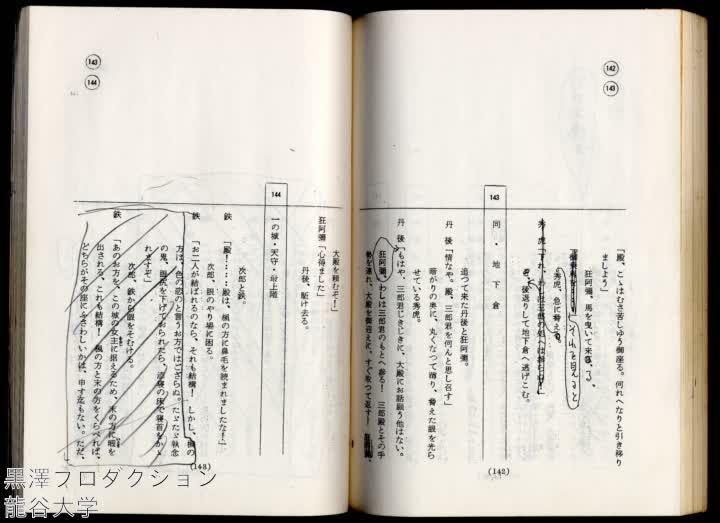 142
143
「殿、こゝはむさ苦しゆう御座る。何れへなりと引き移り
ましよう」
狂阿彌、馬を曳いて来る
それを見ると
秀虎、急に脅え
秀虎
後返りして地下倉へ逃げこむ。
143
同・地下倉
追つて来た丹後と狂阿彌。
丹後「情なや。殿、三郎君を何んと思し召す」
暗がりの奥に、丸くなつて蹲り、脅えた眼を光ら
せている秀虎。
丹後「もはや、三郎君じきじきに、大殿にお話願う他はない。
狂阿彌、わしは三郎君のもとへ参る！三郎殿とその手
勢を連れ、大殿を御迎えに、すぐ取つて返す！
(142)
143
144
大殿を頼むぞ！」
狂阿彌「心得ました」
丹後、駈け去る。
144
一の城・天守・最上階
次郎と鉄。
鉄「殿！……殿は、楓の方に鼻毛を読まれましたな！」
次郎、鉄のやり場に困る。
鉄「お二人が結ばれるのなら、それも結構！しかし、楓の
方は、色の恋のと言うお方ではござらぬ。たゞたゞ執念
の鬼、
れますぞ」
次郎、鉄から眼をそむける。
鉄「あのお方を、この城の女主に据えるため、末の方に暇を
出される、これも結構！楓の方と末の方をくらべれば、
どちらがその座にふさわしいかは、申す迄もない。たゞ、
(143)
黒澤プロダクション
龍谷大学